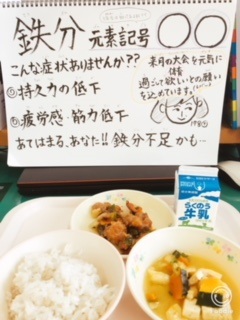 鉄分 元素記号 ○○
こんな症状ありませんか??
① 持久力の低下
② 疲労感・筋力低下
あてはまる、あなた!! 鉄分不足かも…
来月の大会を元気に
過ごして欲しいとの願い
を込めています。
らくのう
牛乳